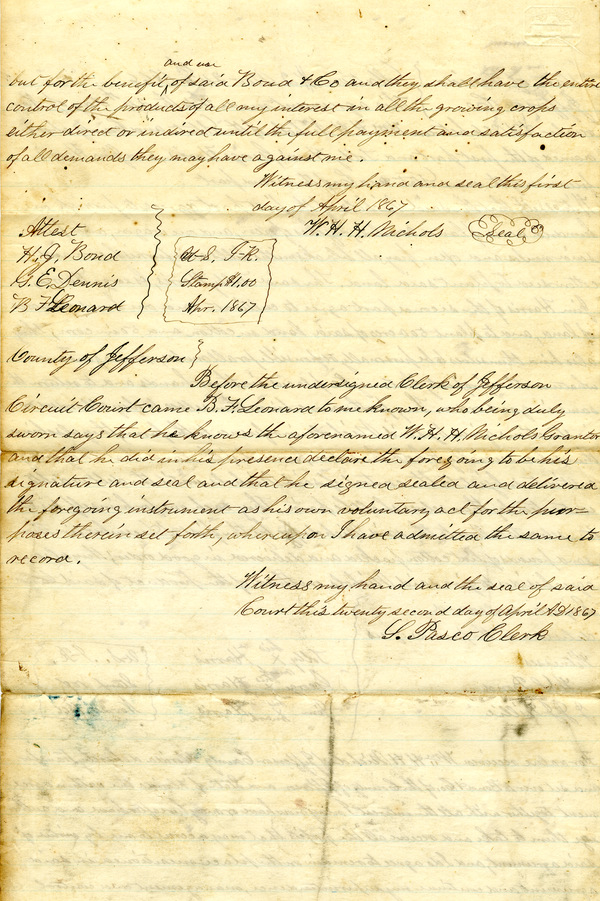 and use
but for the benefit, of said Bond & Co and they shall have the entire
control of the products of all my interest in all the growing crops
either direct or indirect until the full payment and satisfaction
of all demands they may have against me.
Witness my hand and seal this first
day of April 1867
W. H. H. Nichols Seal
Attest
H. J. Bond U.S. I.R.
G. E. Dennis Stamp $1.00
B F Leonard Apr. 1867
County of Jefferson
Before the undersigned Clerk of Jefferson
Circuit Court came B. F. Leonard to me known, who being duly
sworn says that he knows the aforenamed W. H. H. Nichols Grantor
and that he did in his presence declare the foregoing to be his
signature and seal and that he signed sealed and delivered
the foregoing instrument as his own voluntary act for the pur-
poses therein set forth, whereupon I have admitted the same to
record.
Witness my hand and the seal of said
Court this twenty second day of April A.D 1867
S. Pasco Clerk